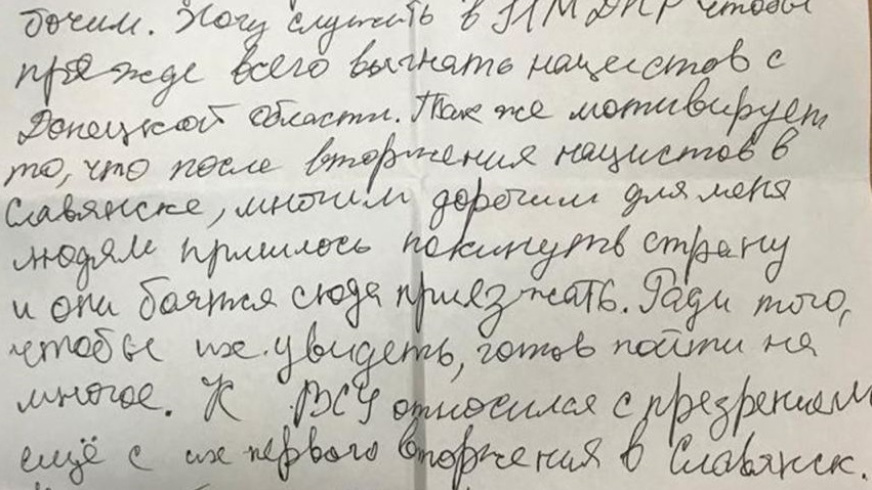 бочим. Хочу служить в НМ ДНР чтобы
прежде всего выгнать нацистов с
Донецкой области. Так же мотивирует
то, что после вторжения нацистов в
Славянске, многим дорогим для меня
людям пришлось покинуть страну
и они боятся сюда приезжать. Ради того,
чтобы их увидеть, готов пойти на
многое. К ВСУ относился с презрением
ещё с их первого вторжения в Славянск.